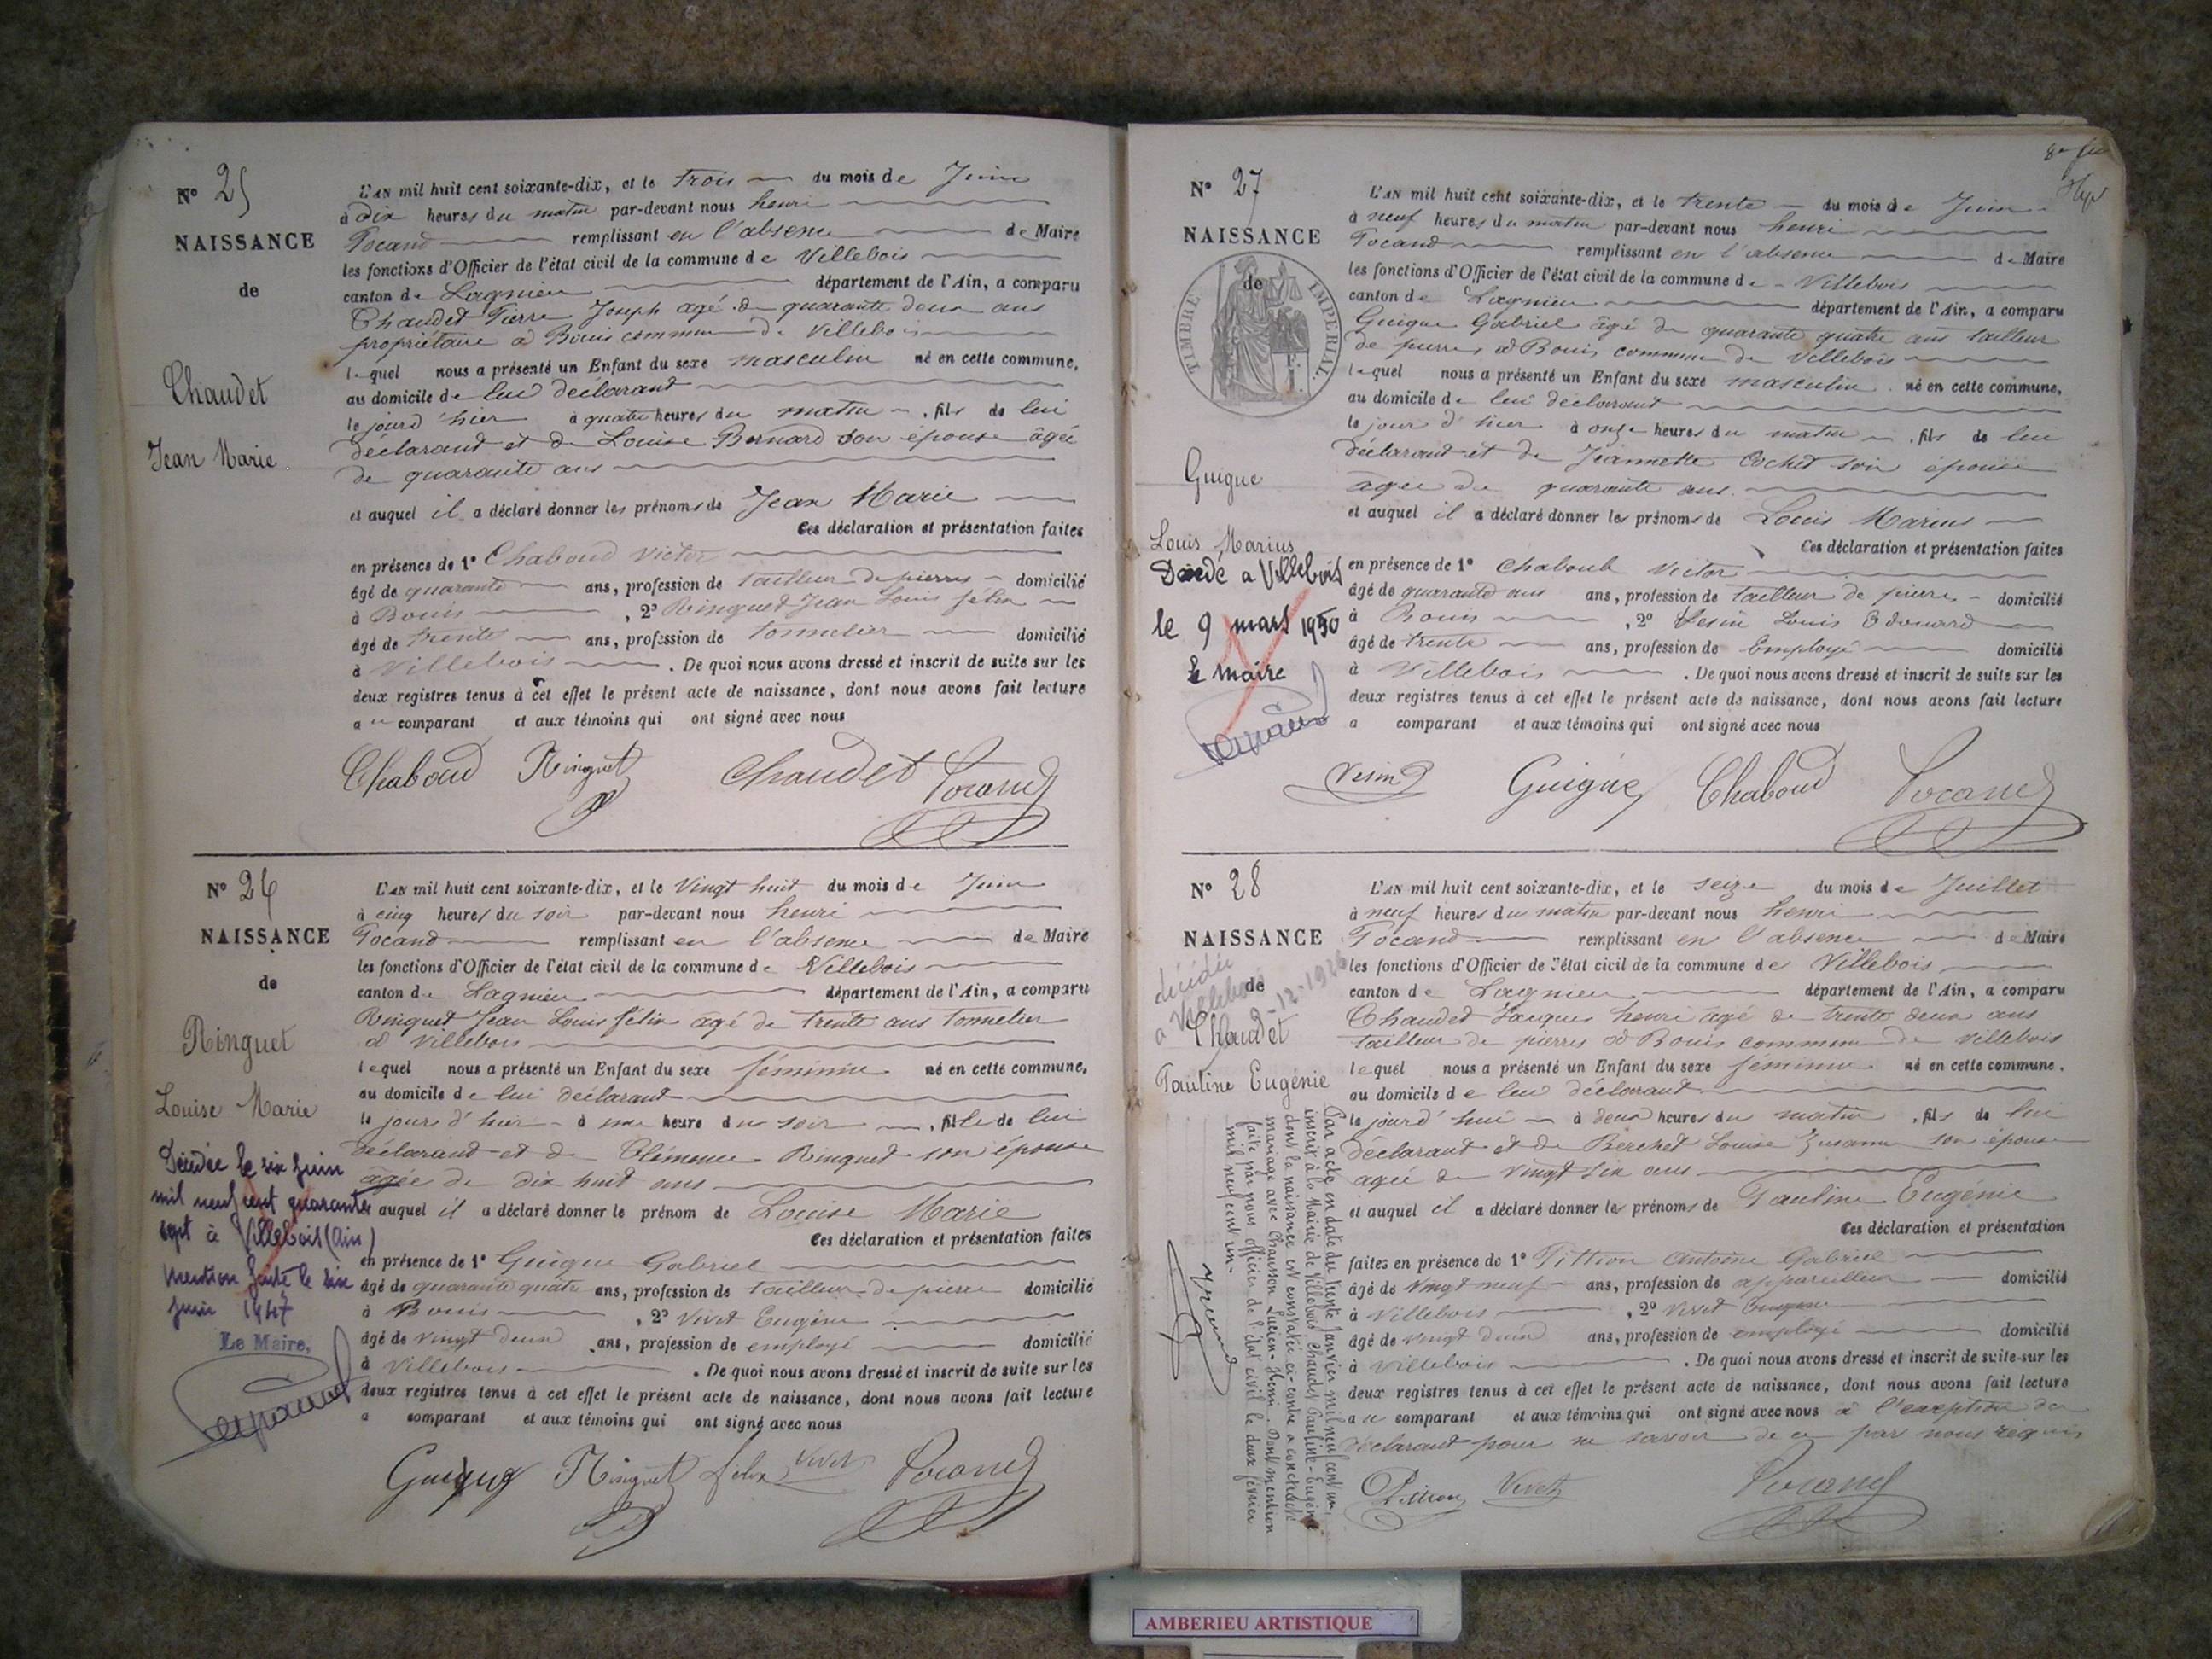 N° 25
NAISSANCE
de
Chaudet
Jean Marie
L'AN mil huit cent soixante-dix, et le trois du mois de Juin
à dix heures du matin par-devant nous henri
Pocand remplissant en l'absence de Maire
les fonctions d'Officier de l'état civil de la commune de Villebois
canton de Lagnieu département de l'Ain, a comparu
Chaudet Pierre Joseph agé de quarante deux ans
propriétaire à Bouis commune de Villebois
lequel nous a présenté un Enfant du sexe masculin né en cette commune,
au domicile de lui déclarant
le jour d'hier à quatre heures du matin, fils de lui
déclarant et de Louise Bernard son épouse âgée
de quarante ans
et auquel il a déclaré donner les prénoms de Jean Marie
Ces déclaration et présentation faites
en présence de 1° Chaboud Victor
âgé de quarante ans, profession de tailleur de pierres domicilié
à Bouis, 2° Ringuet Jean Louis félix
âgé de trente ans, profession de tonnelier domicilié
à Villebois. De quoi nous avons dressé et inscrit de suite sur les
deux registres tenus à cet effet le présent acte de naissance, dont nous avons fait lecture
au comparant et aux témoins qui ont signé avec nous
Chaboud Ringuet Chaudet Pocand
N° 26
NAISSANCE
de
Ringuet
Louise Marie
Décédée le six juin
mil neuf cent quarante
sept à Villebois (Ain)
Mention faite le six
juin 1947
Le Maire,
L'AN mil huit cent soixante-dix, et le vingt huit du mois de Juin
à cinq heures du soir par-devant nous henri
Pocand remplissant en l'absence de Maire
les fonctions d'Officier de l'état civil de la commune de Villebois
canton de Lagnieu département de l'Ain, a comparu
Ringuet Jean Louis félix agé de trente ans tonnelier
à Villebois
lequel nous a présenté un Enfant du sexe féminin né en cette commune,
au domicile de lui déclarant
le jour d'hier à une heure du soir, fille de lui
déclarant et de Clémence Ringuet son épouse
âgée de dix huit ans
auquel il a déclaré donner le prénom de Louise Marie
Ces déclaration et présentation faites
en présence de 1° Guigue Gabriel
âgé de quarante quatre ans, profession de tailleur de pierre domicilié
à Bouis, 2° Vivet Eugène
âgé de vingt deux ans, profession de employé domicilié
à Villebois. De quoi nous avons dressé et inscrit de suite sur les
deux registres tenus à cet effet le présent acte de naissance, dont nous avons fait lecture
a comparant et aux témoins qui ont signé avec nous
Guigue Ringuet félix Vivet Pocand
N° 27
NAISSANCE
de
TIMBRE IMPERIAL
Guigue
Louis Marius
Décédé a Villebois
le 9 mars 1950
le maire
L'AN mil huit cent soixante-dix, et le trente du mois de Juin
à neuf heures du matin par-devant nous henri
Pocand remplissant en l'absence de Maire
les fonctions d'Officier de l'état civil de la commune de Villebois
canton de Lagnieu département de l'Ain, a comparu
Guigue Gabriel âgé de quarante quatre ans tailleur
de pierres à Bouis commune de Villebois
lequel nous a présenté un Enfant du sexe masculin né en cette commune,
au domicile de lui déclarant
le jour d'hier à onze heures du matin, fils de lui
déclarant et de Jeannette Cochet son épouse
agée de quarante ans
et auquel il a déclaré donner les prénoms de Louis Marius
Ces déclaration et présentation faites
en présence de 1° Chaboud Victor
âgé de quarante ans ans, profession de tailleur de pierres domicilié
à Bouis, 2° Vesin Louis Edouard
âgé de trente ans, profession de Employé domicilié
à Villebois. De quoi nous avons dressé et inscrit de suite sur les
deux registres tenus à cet effet le présent acte de naissance, dont nous avons fait lecture
a comparant et aux témoins qui ont signé avec nous
Vesin Guigue Chaboud Pocand
N° 28
NAISSANCE
de
décédée
a Villebois
12-1926
Chaudet
Pauline Eugénie
Par acte en date du trente Janvier mil neuf cent un,
inscrit à la Mairie de Villebois, Chaudet Pauline-Eugénie
dont la naissance est constatée ci-contre a contracté
mariage avec Chausson Lucien-Henri. Dont mention
faite par nous officier de l'état civil le deux février
mil neuf cent un.
L'AN mil huit cent soixante-dix, et le seize du mois de Juillet
à neuf heures du matin par-devant nous henri
Pocand remplissant en l'absence de Maire
les fonctions d'Officier de l'état civil de la commune de Villebois
canton de Lagnieu département de l'Ain, a comparu
Chaudet Jacques henri agé de trente deux ans
tailleur de pierres à Bouis commune de Villebois
lequel nous a présenté un Enfant du sexe féminin né en cette commune.
au domicile de lui déclarant
le jourd'hui à deux heures du matin, fils de lui
déclarant et de Berchet Louise Zusanne son épouse
agée de vingt six ans
et auquel il a déclaré donner les prénoms de Pauline Eugénie
Ces déclaration et présentation
faites en présence de 1° Pittion Antoine Gabriel
âgé de vingt neuf ans, profession de appareilleur domicilié
à Villebois, 2° Vivet Eugène
âgé de vingt deux ans, profession de employé domicilié
à Villebois. De quoi nous avons dressé et inscrit de suite sur les
deux registres tenus à cet effet le présent acte de naissance, dont nous avons fait lecture
au comparant et aux témoins qui ont signé avec nous à l'exception du
déclarant pour ne savoir de ce par nous requis
Pittion Vivet Pocand
AMBERIEU ARTISTIQUE